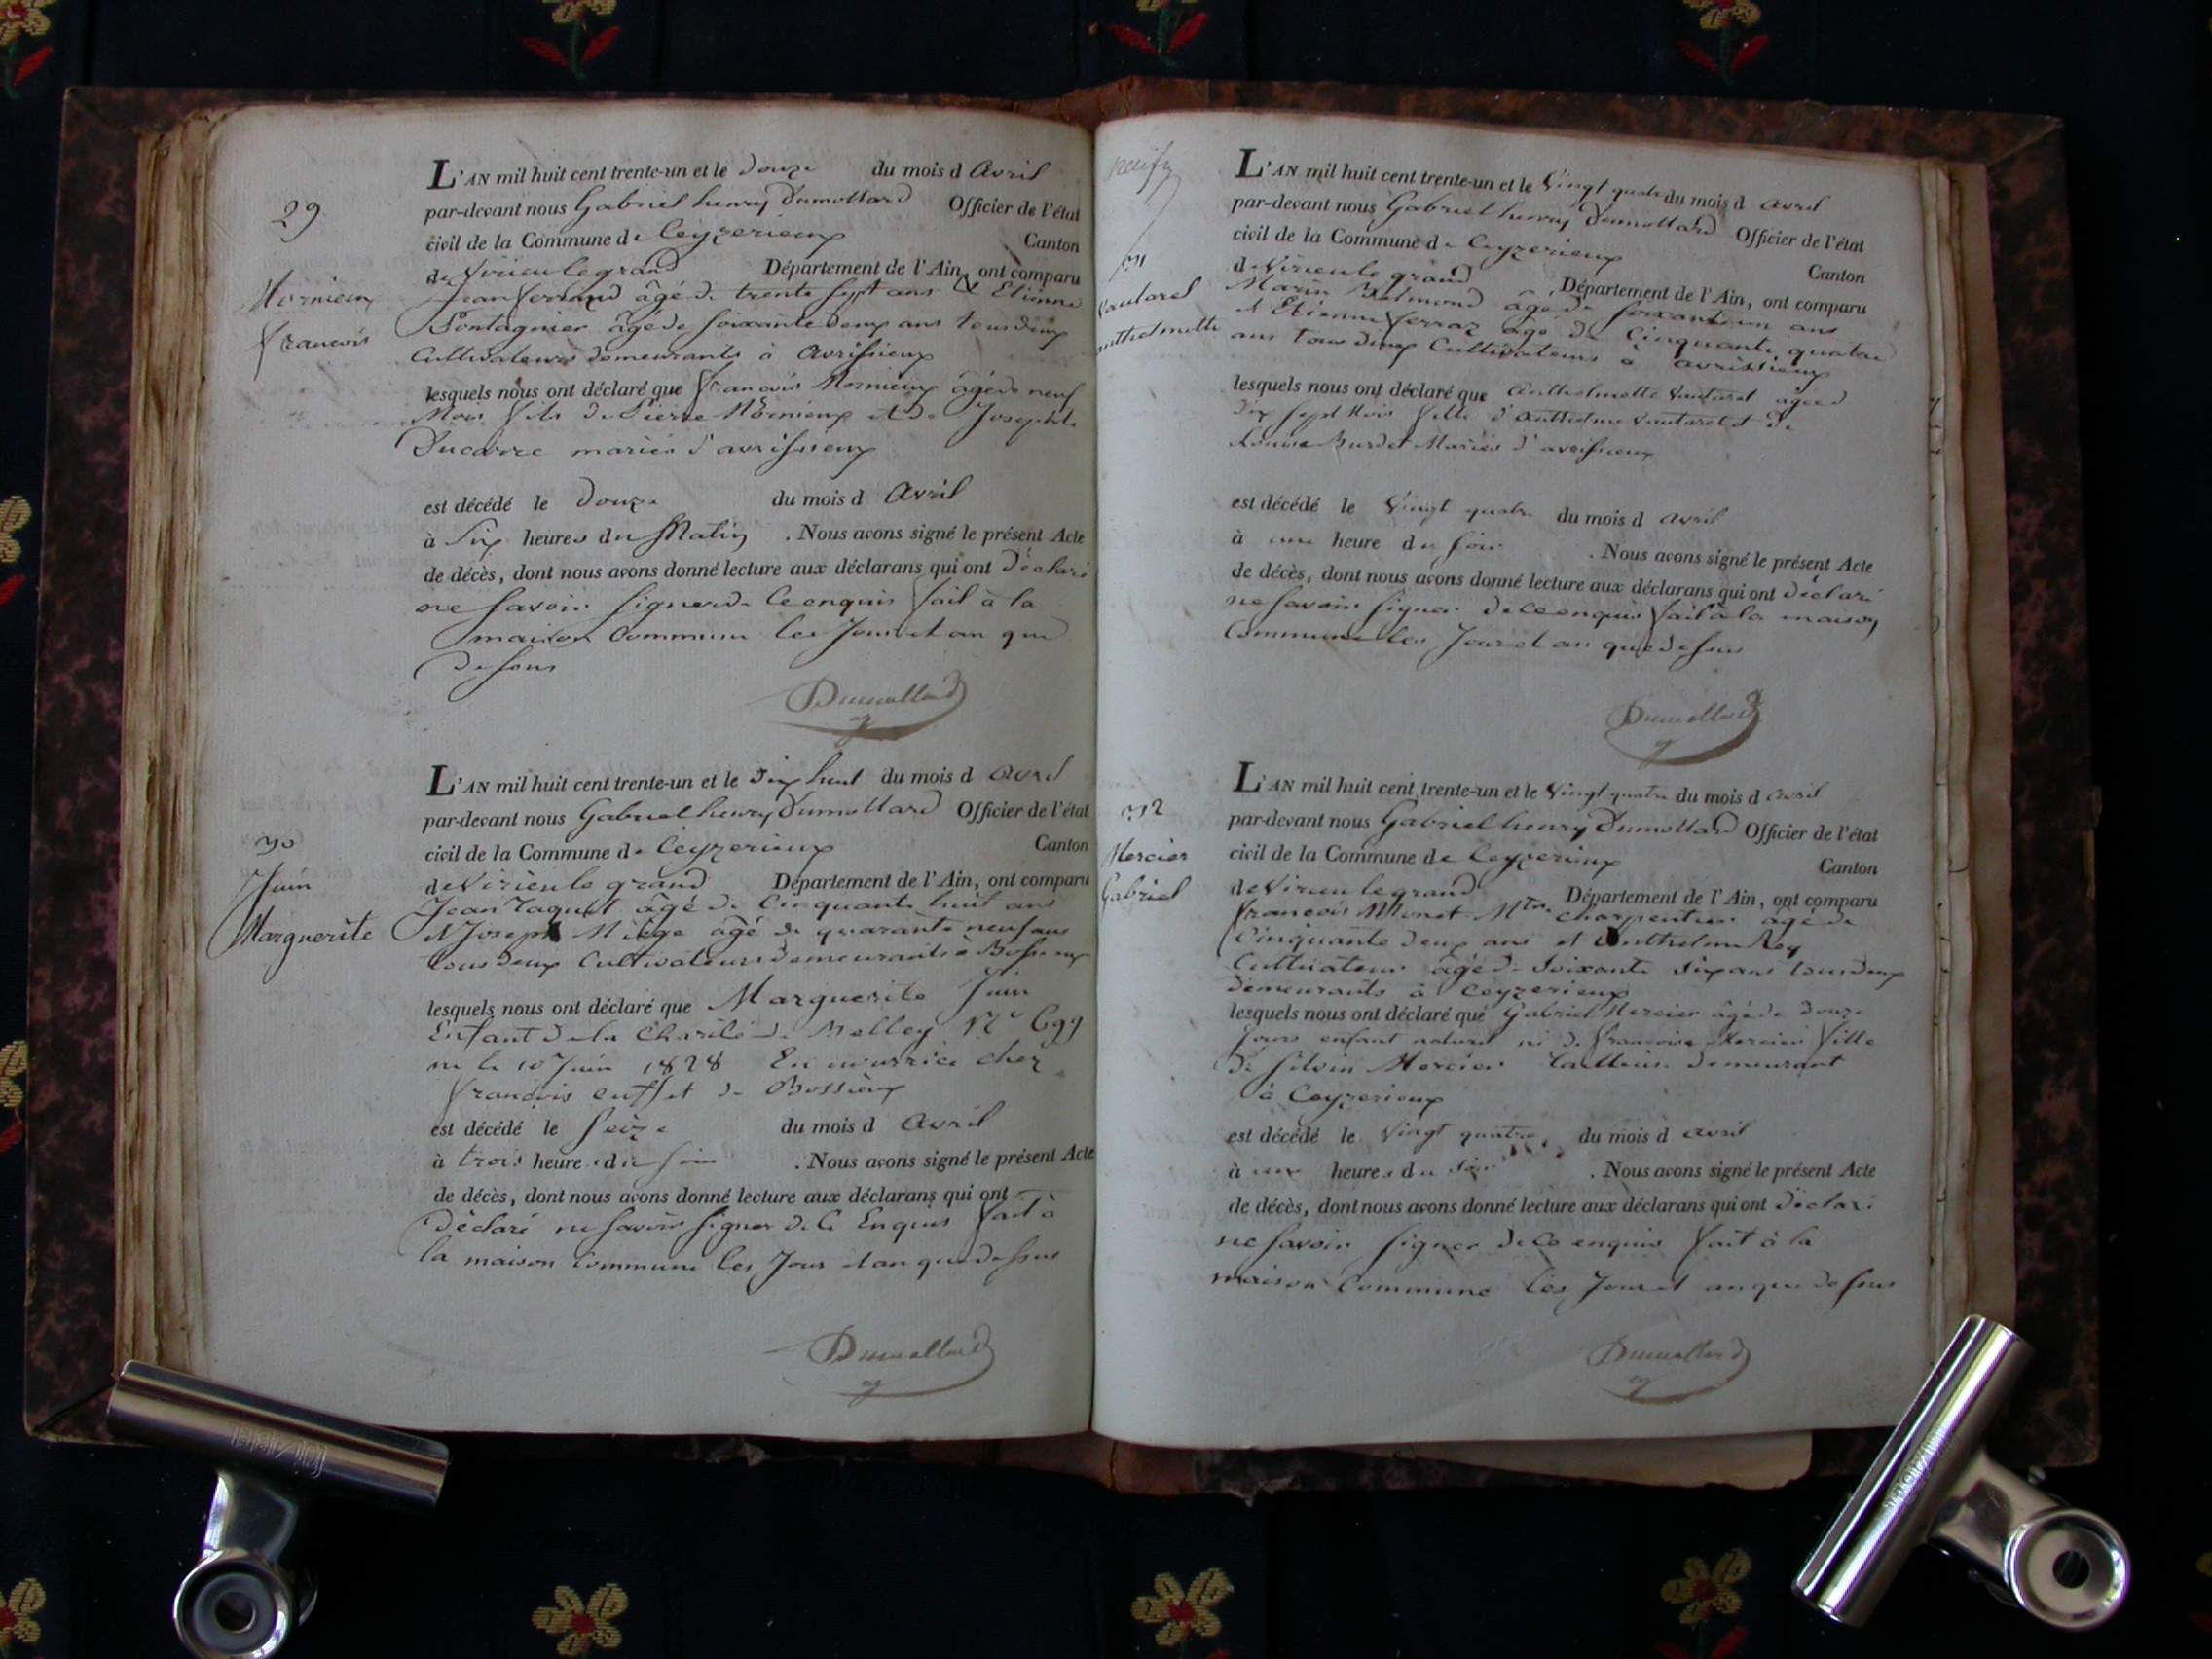 29
Mornieux
François
L'AN mil huit cent trente-un et le douze du mois d avril
par-devant nous Gabriel henry Dumollard Officier de l'état
civil de la Commune de Ceyzerieux Canton
de Virieu le grand Département de l'Ain, ont comparu
Jean ferrand âgé de trente sept ans & Etienne
Pontagnier âgé de soixante deux ans tous deux
Cultivateurs demeurants à avrissieux
lesquels nous ont déclaré que françois Mornieux âgé de neuf
Mois fils de Pierre Mornieux et de Josephte
Ducarre mariés d'avrissieux
est décédé le douze du mois d avril
à six heures du Matin . Nous avons signé le présent Acte
de décès, dont nous avons donné lecture aux déclarans qui ont déclaré
ne savoir signer de ce enquis fait à la
maison Commune les Jour et an que
dessus
Dumollard
30
Juin
Marguerite
L'AN mil huit cent trente-un et le dix huit du mois d avril
par-devant nous Gabriel henry Dumollard Officier de l'état
civil de la Commune de Ceyzerieux Canton
de Virieu le grand Département de l'Ain, ont comparu
Jean Taquet âgé de Cinquante huit ans
et Joseph Miège âgé de quarante neuf ans
tous deux Cultivateurs demeurants à Bossieux
lesquels nous ont déclaré que Marguerite Juin
Enfant de la Charité de Belley N° 699
né le 10 Juin 1828 En nourrice chez
françois de Bossieux
est décédé le seize du mois d avril
à trois heures du soir . Nous avons signé le présent Acte
de décès, dont nous avons donné lecture aux déclarans qui ont
déclaré ne savoir signer de ce Enquis fait à
la maison Commune les Jour et an que dessus
Dumollard
31
Vautarel
Anthelmette
L'AN mil huit cent trente-un et le Vingt quatre du mois d avril
par-devant nous Gabriel henry Dumollard Officier de l'état
civil de la Commune de Ceyzerieux Canton
de Virieu le grand Département de l'Ain, ont comparu
Marin Belmond âgé de soixante un ans
et Etienne ferraz âgé de Cinquante quatre
ans tous deux Cultivateurs à avrissieux
lesquels nous ont déclaré que Anthelmette Vautarel agee d
dix sept Mois fille d'Anthelme Vautarel et de
Louise Burdet Mariés d'avrissieux
est décédé le Vingt quatre du mois d avril
à une heure du soir . Nous avons signé le présent Acte
de décès, dont nous avons donné lecture aux déclarans qui ont déclaré
ne savoir signer de ce enquis fait à la maison
Commune les Jour et an que dessus
Dumollard
32
Mercier
Gabriel
L'AN mil huit cent trente-un et le Vingt quatre du mois d avril
par-devant nous Gabriel henry Dumollard Officier de l'état
civil de la Commune de Ceyzerieux Canton
de Virieu le grand Département de l'Ain, ont comparu
françois Monet Mtre charpentier âgé de
Cinquante deux ans et Anthelme Rey
Cultivateur âgé de Soixante six ans tous deux
demeurants à Ceyzerieux
lesquels nous ont déclaré que Gabriel Mercier âgé de douze
Jours enfant naturel né de françoise Mercier fille
de Silvin Mercier tailleur demeurant
à Ceyzerieux
est décédé le Vingt quatre du mois d avril
à une heures du soir . Nous avons signé le présent Acte
de décès, dont nous avons donné lecture aux déclarans qui ont déclaré
ne savoir signer de ce enquis fait à la
maison Commune les Jour et an que dessus
Dumollard